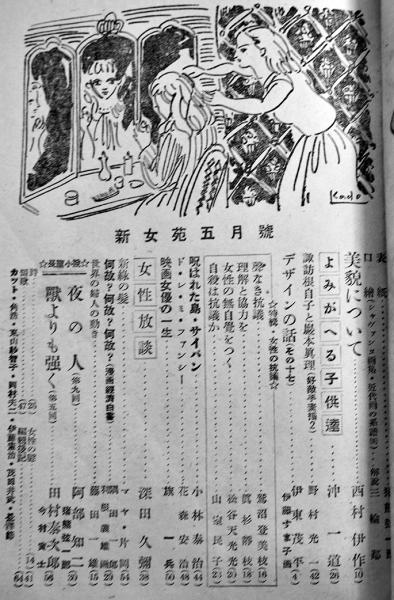 Kado
新女苑五月號
表紙
口繪
美貌について……西村伊作(10)
よみがへる子供達……沖一道(26)
諏訪根自子と巖本眞理(好敵手素描2)……野村光一(42)
デザインの話(その十七)……伊東茂平(4)
伊藤すま子画
☆特輯 女性の抗議☆
聲なき抗議……鷲沼登美枝(16)
理解と協力を……眞杉靜枝(18)
女性の無自覺をつく……松谷天光光(20)
自殺は抗議か……山室民子(21)
呪はれた島・サイパン……小林泰治(44)
ド・レ・ミ・ファンシー……花森安治(48)
映画女優の一生……旗一兵(50)
女性放談……深田久彌(38)
新緑の髪……マヤ・片岡(54)
何故?何故?何故?(漫画經濟白書)
世界の婦人の動き……藤田一雄(15)
☆長篇小説☆
夜の人(第九回)……阿部知二(30)
獸よりも強く(第五回)……田村泰次郎(56)
詩
短歌
女性の鬱
編輯後記
カット